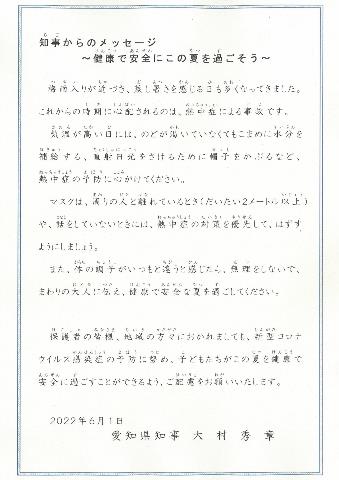 知事からのメッセージ
～健康で安全にこの夏を過ごそう～
梅雨入りが近づき、蒸し暑さを感じる日も多くなってきました。
これからの時期に心配されるのは、熱中症による事故です。
気温が高い日には、のどが渇いていなくてもこまめに水分を
補給する、直射日光をさけるために帽子をかぶるなど、
熱中症の予防に心がけてください。
マスクは、周りの人と離れているとき(だいたい2メートル以上)
や、話をしていないときには、熱中症の対策を優先して、はずす
ようにしましょう。
また、体の調子がいつもと違うと感じたら、無理をしないで、
まわりの大人に伝え、健康で安全な夏を過ごしてください。
保護者の皆様、地域の方々におかれましても、新型コロナ
ウイルス感染症の予防に努め、子どもたちがこの夏を健康で
安全に過ごすことができるよう、ご配慮をお願いいたします。
2022年6月1日
愛知県知事 大村秀章